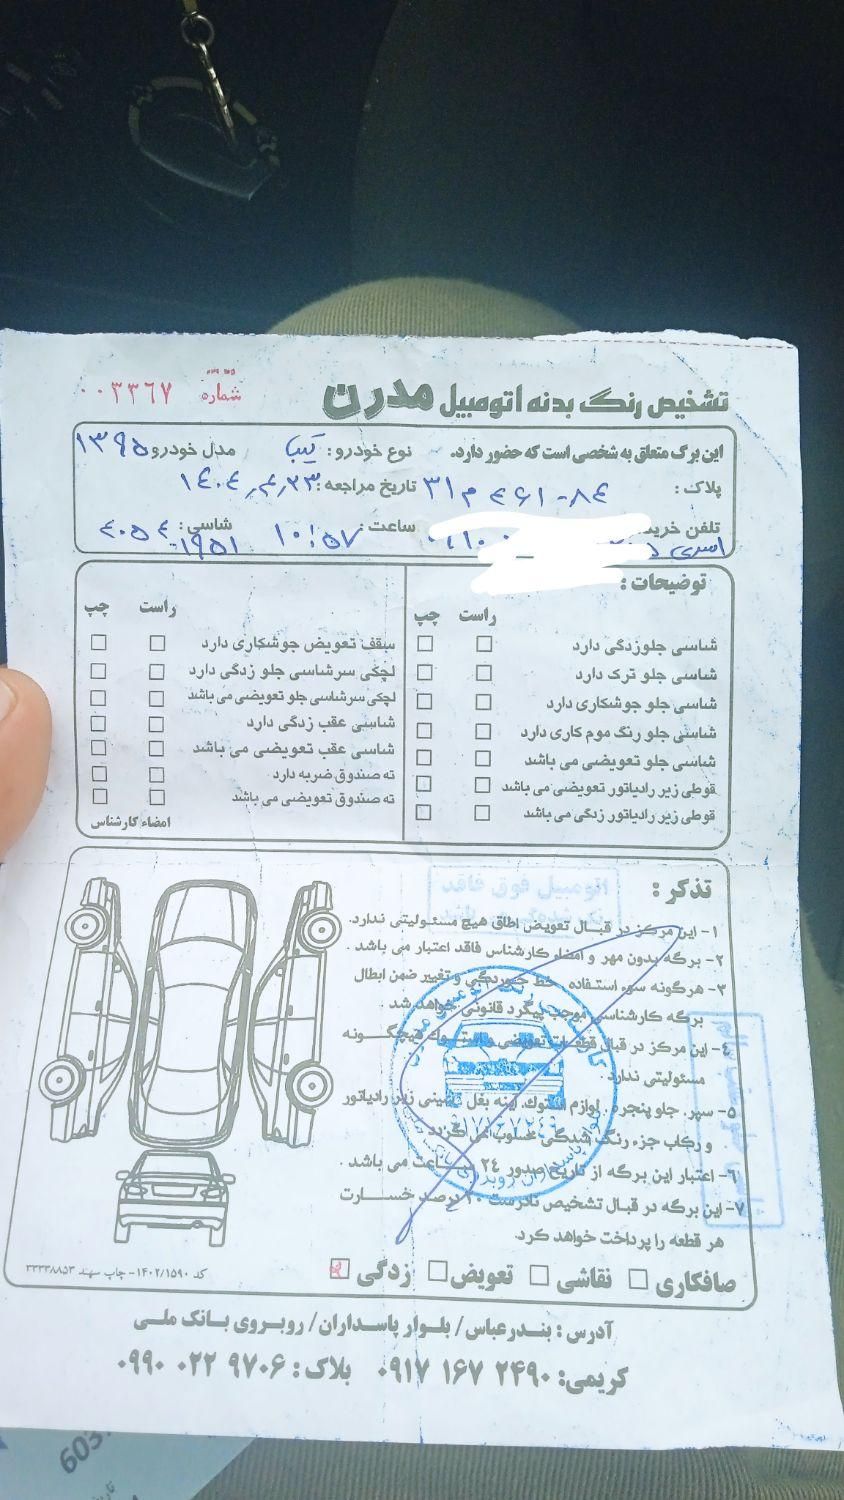 تشخیص رنگ بدنه اتومبیل مدرن
شماره ۰۰۳۳۶۷
این برگ متعلق به شخصی است که حضور دارد. نوع خودرو: تیبا مدل خودرو ۱۳۹۵
پلاک: ۸۴-۴۶۱ م ۳۱ تاریخ مراجعه: ۱۴۰۴,۴,۲۳
تلفن خرید ساعت: ۱۰:۵۷ شاسی:
توضیحات:
راست چپ
شاسی جلوزدگی دارد
شاسی جلو ترک دارد
شاسی جلو جوشکاری دارد
شاسی جلو رنگ موم کاری دارد
شاسی جلو تعویضی می باشد
قوطی زیر رادیاتور تعویضی می باشد
قوطی زیر رادیاتور زدگی می باشد
راست چپ
سقف تعویض جوشکاری دارد
لچکی سرشاسی جلو زدگی دارد
لچکی سرشاسی جلو تعویضی می باشد
شاسی عقب زدگی دارد
شاسی عقب تعویضی می باشد
ته صندوق ضربه دارد
ته صندوق تعویضی می باشد
امضاء کارشناس
تذکر:
اتومبیل فوق فاقد
۱- این مرکز در قبال تعویض اطاق هیچ مسئولیتی ندارد.
۲- برگه بدون مهر و امضاء کارشناس فاقد اعتبار می باشد.
۳- هرگونه سوء استفاده، خط خوردگی و تغییر ضمن ابطال
برگه کارشناسی موجب پیگرد قانونی خواهد شد
۴- این مرکز در قبال قطعات تعویضی و استوک هیچگونه
مسئولیتی ندارد.
۵- سپر، جلو پنجره، لوازم استوک، آینه بغل، سینی زیر رادیاتور
و رکاب جزء رنگ شدگی محسوب نمی گردد
۶- اعتبار این برگه از تاریخ صدور ۲۴ ساعت می باشد.
۷- این برگه در قبال تشخیص نادرست ۲۰ درصد خسارت
هر قطعه را پرداخت خواهد کرد.
صافکاری نقاشی تعویض زدگی
کد ۱۴۰۲/۱۵۹۰- چاپ سهند ۳۳۳۳۸۸۵۳
آدرس: بندرعباس/ بلوار پاسداران/ روبروی بانک ملی
کریمی: ۰۹۱۷ ۱۶۷ ۲۴۹۰ بلاک: ۰۹۹۰ ۰۲۲ ۹۷۰۶
603